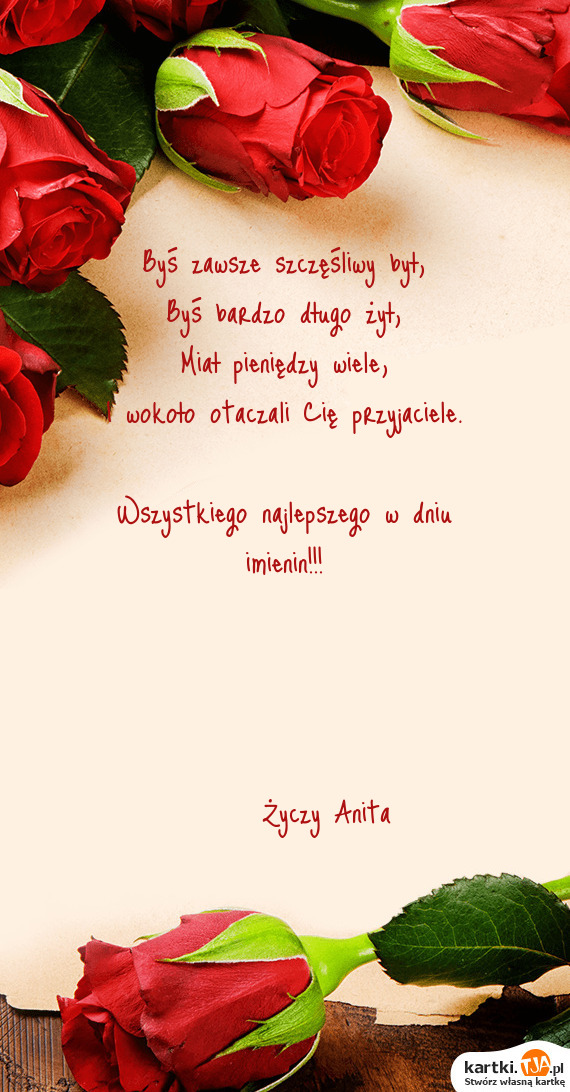 Byś zawsze szczęśliwy był,
Byś bardzo długo żył,
Miał pieniędzy wiele,
I wokoło otaczali Cię przyjaciele.
Wszystkiego najlepszego w dniu
imienin!!!
Życzy Anita
kartki.TJA.pl
Stwórz własną kartkę